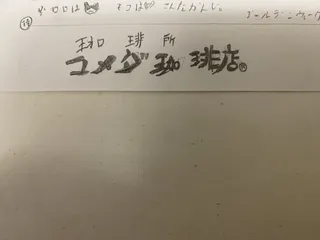 ガロロは キコは こんなかんじ。
⑱ ゴールデンウィーク
珈 琲 所
コメダ珈琲店®